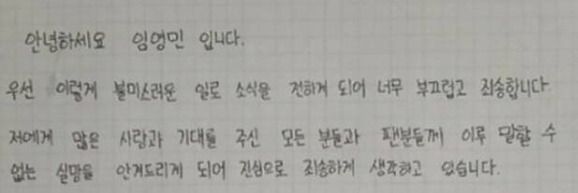 안녕하세요 임영민 입니다.
우선 이렇게 불미스러운 일로 소식을 전하게 되어 너무 부끄럽고 죄송합니다.
저에게 많은 사랑과 기대를 주신 모든 분들과 팬분들께 이루 말할 수
없는 실망을 안겨드리게 되어 진심으로 죄송하게 생각하고 있습니다.